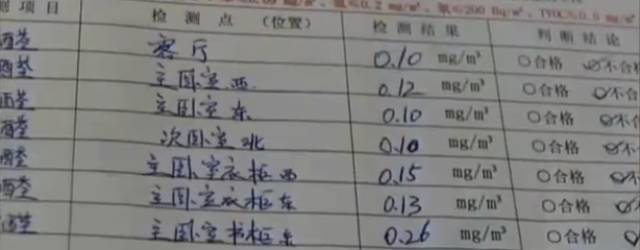 测项目 检测点（位置） 检测结果 判断结论
客厅 0.10 mg/m³ ○合格 不合
主卧室西 0.12 mg/m³ ○合格 不合
主卧室东 0.10 mg/m³ ○合格 不
次卧室北 0.10 mg/m³ ○合格 不
主卧室衣柜西 0.15 mg/m³ ○合格 不
主卧室衣柜东 0.13 mg/m³ ○合格 不
主卧室书柜东 0.26 mg/m³ ○合格